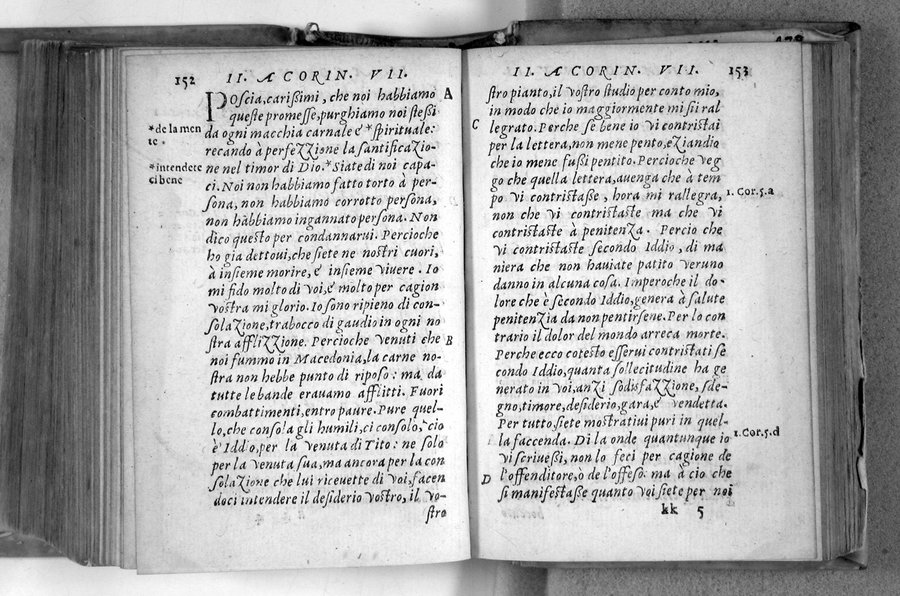 152 II. A CORIN. VII.
Poscia, carißimi, che noi habbiamo A
queste promesse, purghiamo noi steßi
*de la men
te.
da ogni macchia carnale e *spirituale:
recando à perfezzione la santificazio-
*intendete
ci bene
ne nel timor di Dio.* Siate di noi capa-
ci. Noi non habbiamo fatto torto à per-
sona, non habbiamo corrotto persona,
non habbiamo ingannato persona. Non
dico questo per condannarui. Percioche
ho gia dettoui, che siete ne nostri cuori,
à insieme morire, e insieme viuere. Io
mi fido molto di voi, e molto per cagion
vostra mi glorio. Io sono ripieno di con-
solazione, trabocco di gaudio in ogni no
stra afflizzione. Percioche venuti che B
noi fummo in Macedonia, la carne no-
stra non hebbe punto di riposo: ma da
tutte le bande erauamo afflitti. Fuori
combattimenti, entro paure. Pure quel-
lo, che consola gli humili, ci consolo, cio
è Iddio, per la venuta di Tito: ne solo
per la venuta sua, ma ancora per la con
solazione che lui riceuette di voi, facen
doci intendere il desiderio vostro, il vo-
stro
II. A CORIN. VII. 153
stro pianto, il vostro studio per conto mio,
in modo che io maggiormente mi sii ral
C legrato. Perche se bene io vi contristai
per la lettera, non mene pento, eziandio
che io mene fußi pentito. Percioche veg
go che quella lettera, auenga che à tem
po vi contristaße, hora mi rallegra, 1. Cor. 5. a
non che vi contristaste ma che vi
contristaste à penitenza. Percio che
vi contristaste secondo Iddio, di ma
niera che non hauiate patito veruno
danno in alcuna cosa. Imperoche il do-
lore che è secondo Iddio, genera à salute
penitenzia da non pentirsene. Per lo con
trario il dolor del mondo arreca morte.
Perche ecco cotesto esserui contristati se
condo Iddio, quanta sollecitudine ha ge
nerato in voi, anzi sodisfazzione, sde-
gno, timore, desiderio, gara, e vendetta.
Per tutto, siete mostratiui puri in quel-
la faccenda. Di la onde quantunque io 1. Cor. 5. d
vi scriueßi, non lo feci per cagione de
D l'offenditore, ò de l'offeso. ma à cio che
si manifestaße quanto voi siete per noi
kk 5